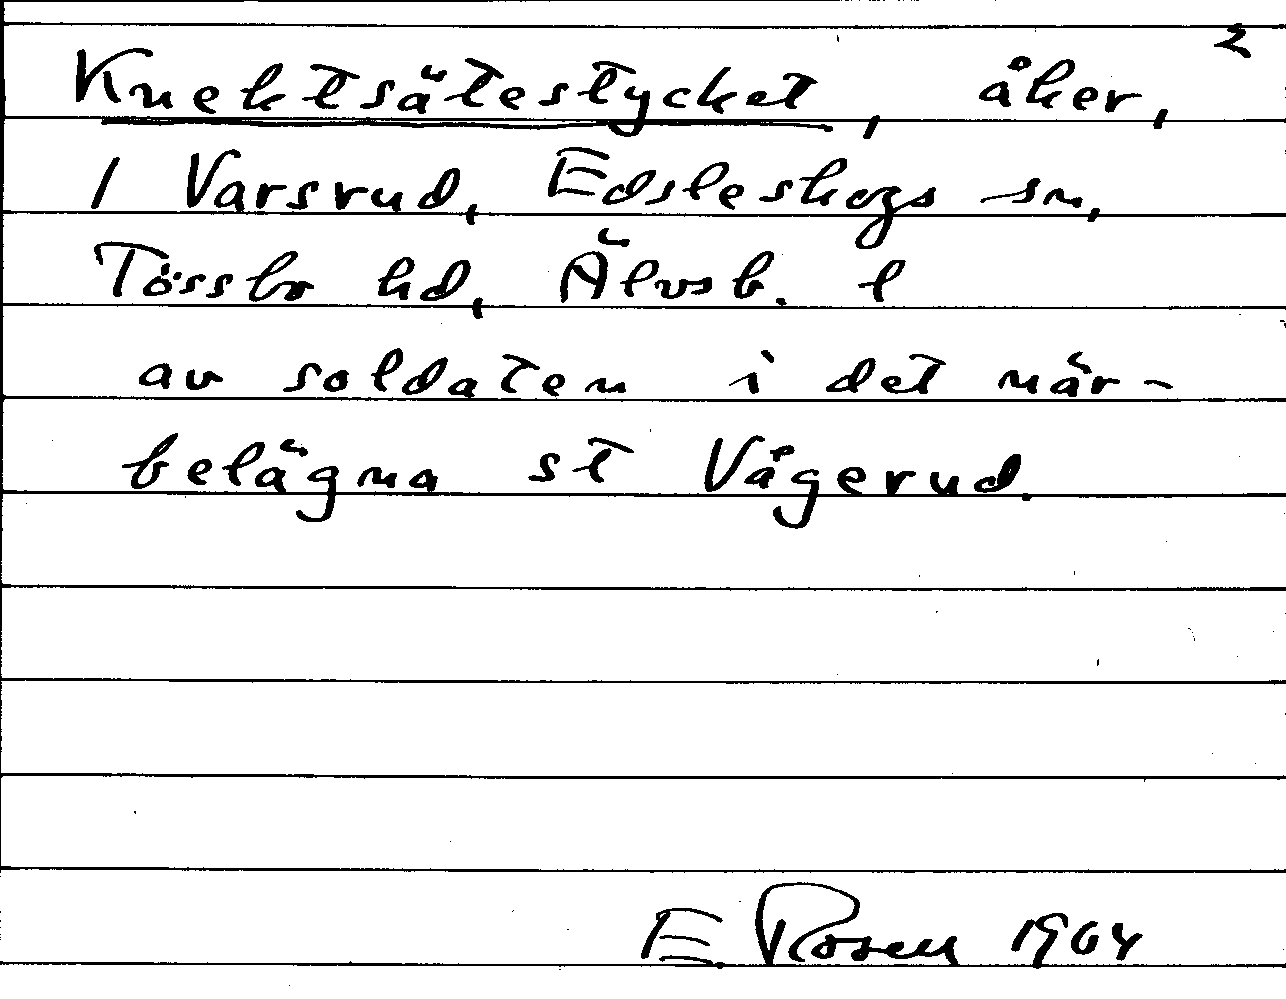 2
Knektsätestycket, åker,
1 Varsrud, Edsleskogs sn,
Tössbo hd, Älvsb. l
av soldaten i det när-
belägna st Vågerud.
E. Rosen 1964